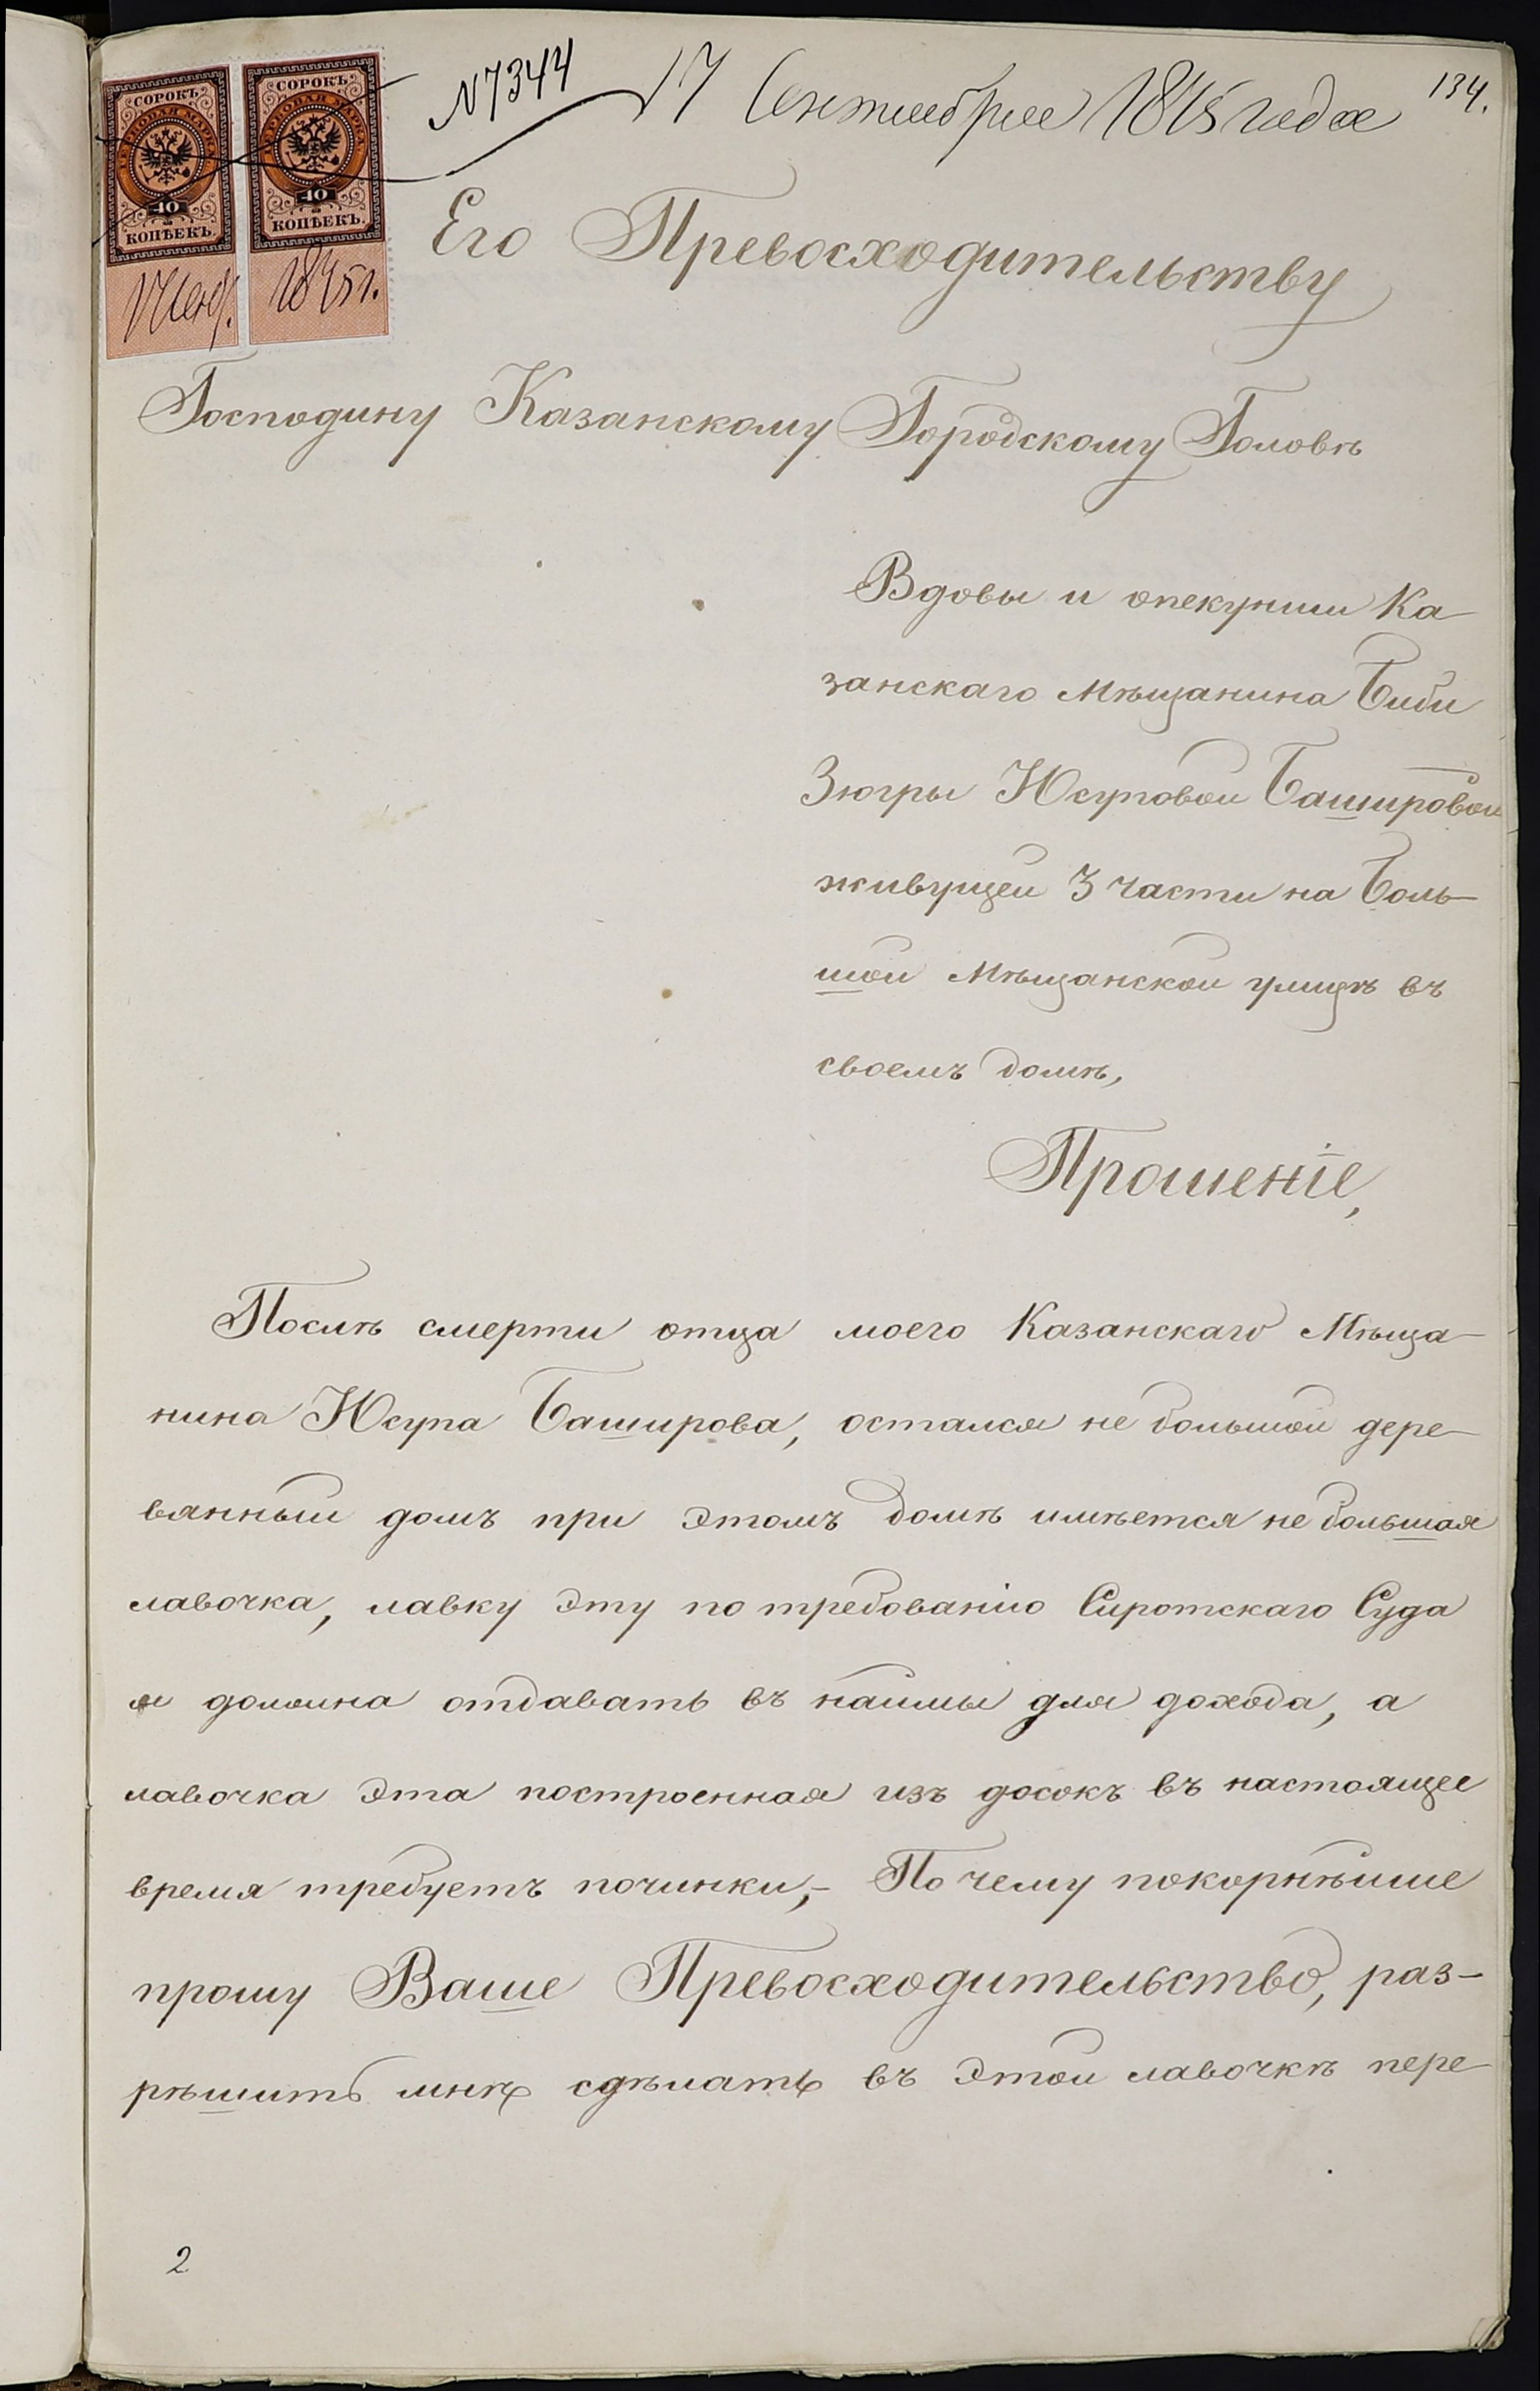 134.
№ 7344 17 Сентября 1875 года
СОРОКЪ
ГЕРБОВАЯ МАРКА
40
КОПѢЕКЪ.
17 Сент.
СОРОКЪ
ГЕРБОВАЯ МАРКА
40
КОПѢЕКЪ.
1875 г.
Его Превосходительству
Господину Казанскому Городскому Головѣ
Вдовы и опекунши Ка-
занскаго Мѣщанина Биби
Зюгры Юсуповой Башировой
живущей 3 части на Боль-
шой Мѣщанской улицѣ въ
своемъ домѣ,
Прошеніе,
Послѣ смерти отца моего Казанскаго Мѣща-
нина Юсупа Баширова, остался не большой дере-
вянный домъ при этомъ домѣ имѣется не большая
лавочка, лавку эту по требованію Сиротскаго Суда
я должна отдавать въ наймы для дохода, а
лавочка эта построенная изъ досокъ въ настоящее
время требуетъ починки,- По чему покорнѣйше
прошу Ваше Превосходительство, раз-
рѣшить мнѣ сдѣлать въ этой лавочкѣ пере-
2